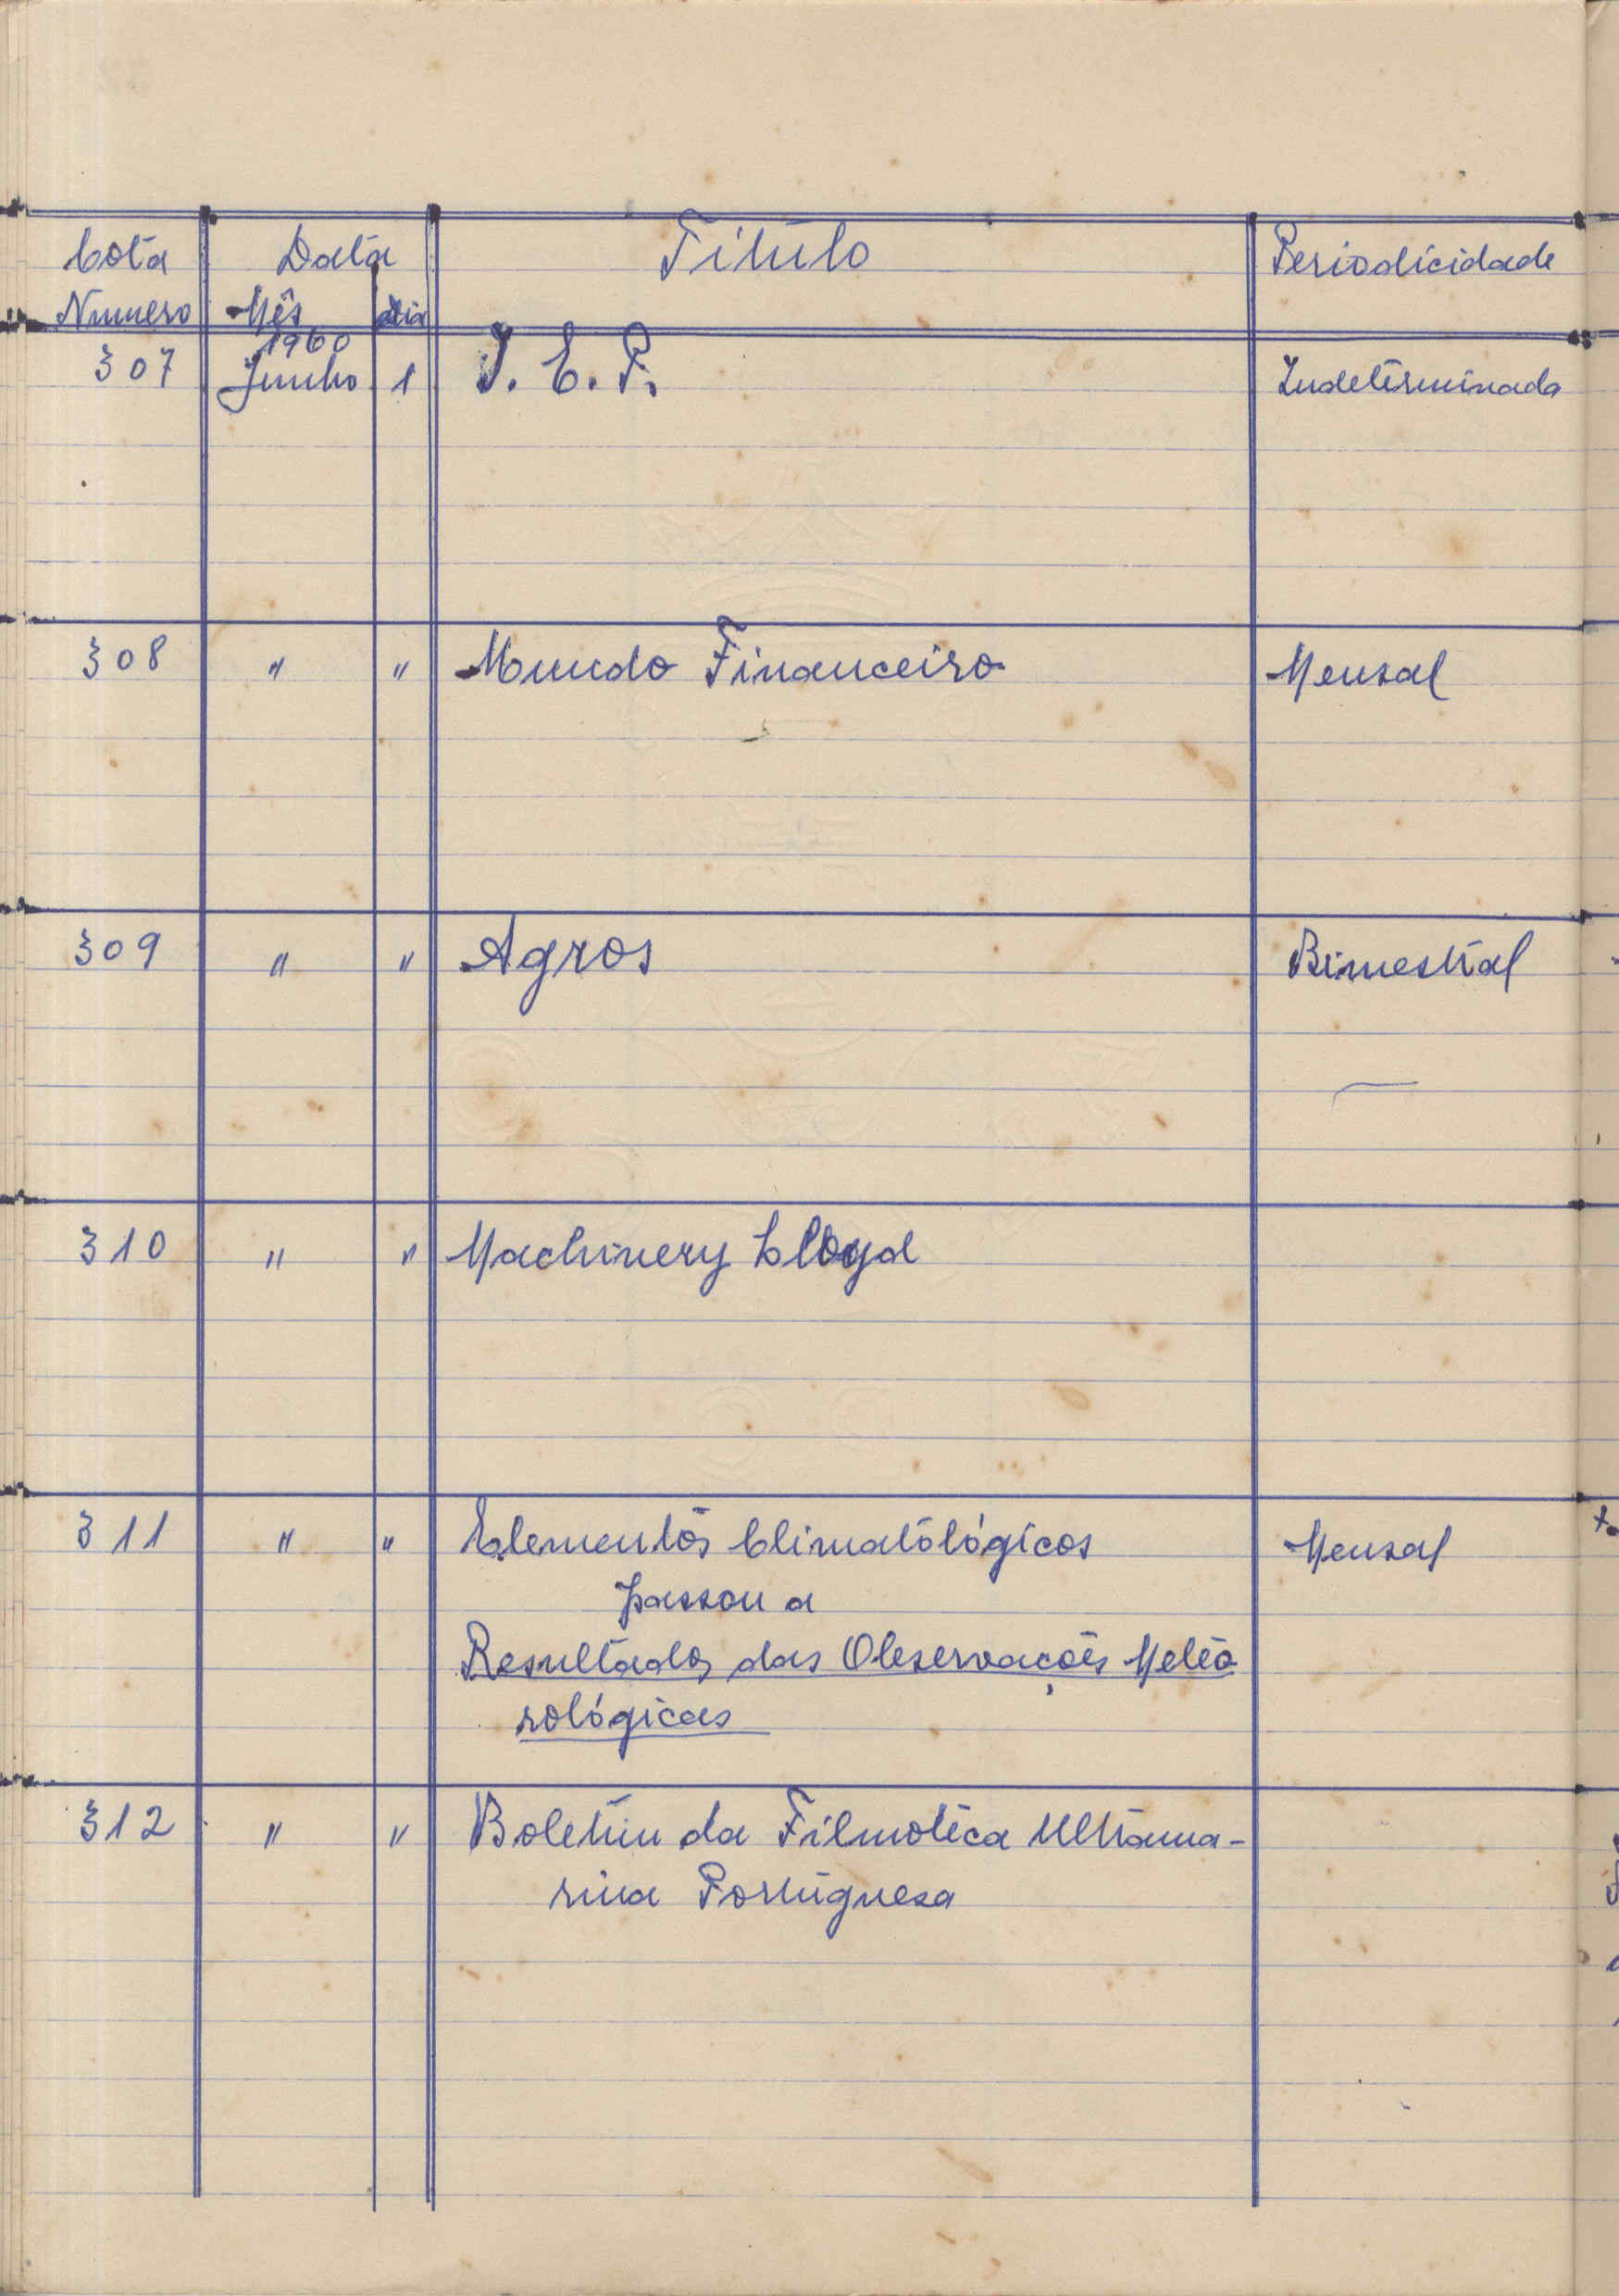 Cota Data Titulo Periodicidade
Numero Mês dia
1960
307 Junho 1 I. E. P. Indeterminada
308 " " Mundo Financeiro Mensal
309 " " Agros Bimestral
310 " " Machinery Lloyd
311 " " Elementos Climatológicos Mensal
passou a
Resultados das Observações Meteo
rológicas
312 " " Boletim da Filmoteca Ultrama-
rina Portuguesa